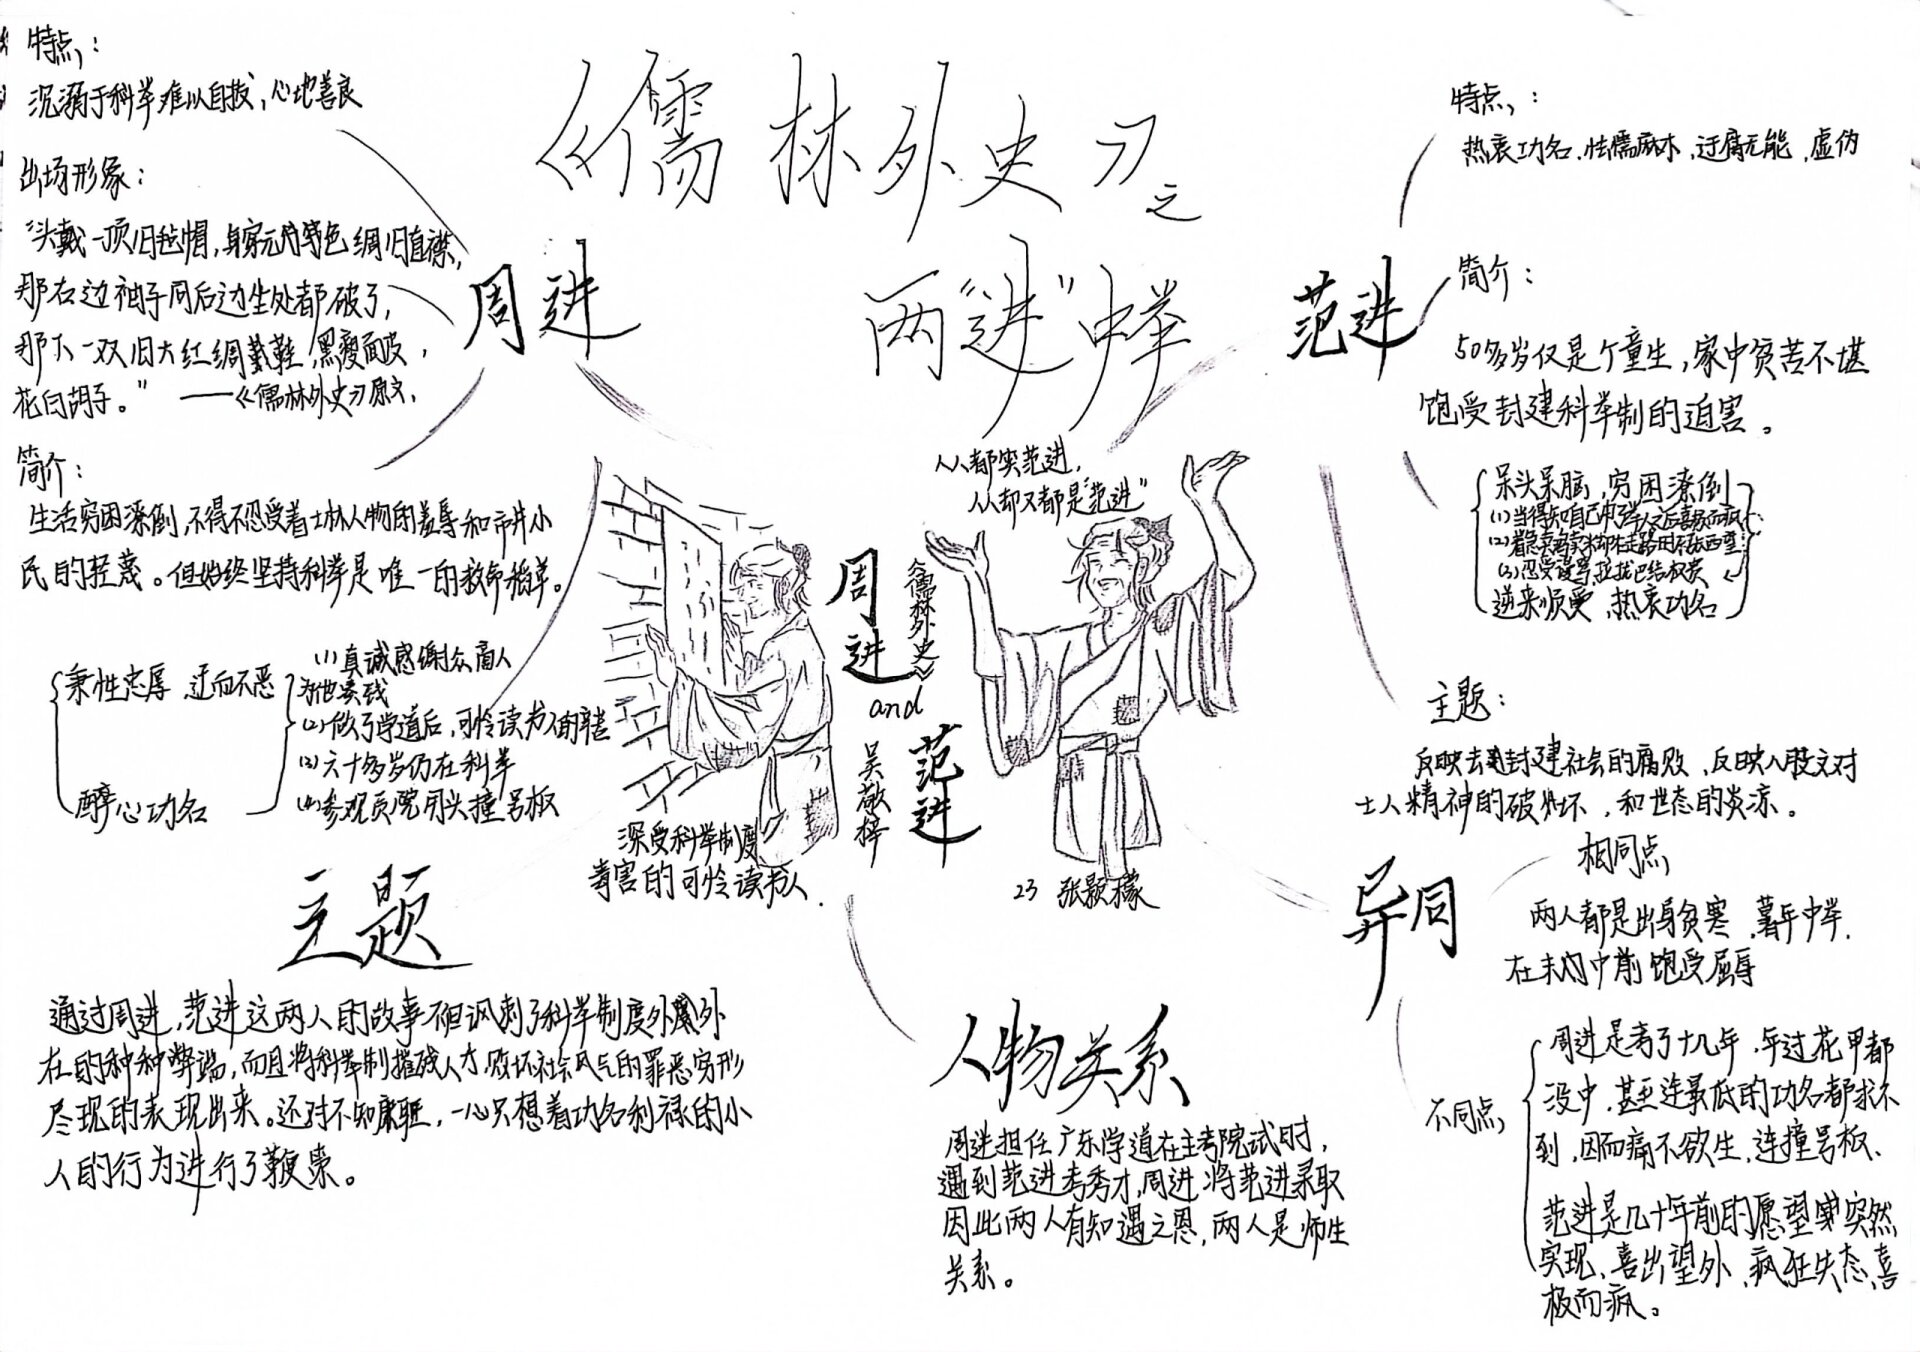 《儒林外史》之
两“进”中举
周进
特点:
沉溺于科举难以自拔,心地善良
出场形象:
“头戴一顶旧毡帽,身穿元色绸旧直裰,
那右边袖子同后边坐处都破了,
那下一双旧大红绸鞋,黑瘦面皮,
花白胡子。”——《儒林外史》原文
简介:
生活穷困潦倒,不得不忍受着士林人物的羞辱和市井小
民的轻蔑。但始终坚持科举是唯一的救命稻草。
秉性忠厚,迂而不恶
(1)真诚感谢众商人
为他卖钱
(2)做了学道后,可怜读书人的辛苦
(3)六十多岁仍在科举
(4)参观贡院头撞号板
醉心功名
主题
通过周进,范进这两人的故事不但讽刺了科举制度外
在的种种弊端,而且将科举制摧残人才,败坏社会风气的罪恶穷形
尽现的表现出来。还对不知廉耻,一心只想着功名利禄的小
人的行为进行了鞭策。
人人都笑范进,
人人却又都是“范进”
周进
and
范进
《儒林外史》
吴敬梓
深受科举制度
毒害的可怜读书人.
23 张颢檬
人物关系
周进担任广东学道在主考院试时,
遇到范进考秀才,周进将范进录取
因此两人有知遇之恩,两人是师生
关系。
范进
特点:
热衷功名、怯懦麻木、迂腐无能、虚伪
简介:
50多岁仅是个童生,家中贫苦不堪
饱受封建科举制的迫害。
呆头呆脑,穷困潦倒
(1)当得知自己中了举人之后喜极而疯
(3)忍受谩骂,拉拢巴结权贵
逆来顺受,热衷功名
主题:
反映封建社会的腐败,反映八股文对
士人精神的破坏,和世态的炎凉。
异同
相同点
两人都是出身贫寒,暮年中举,
在未中前饱受屈辱
不同点
周进是考了十几年,年过花甲都
没中,甚至连最低的功名都求不
到,因而痛不欲生,连撞号板、
范进是几十年前的愿望突然
实现、喜出望外,疯狂失态,喜
极而疯。